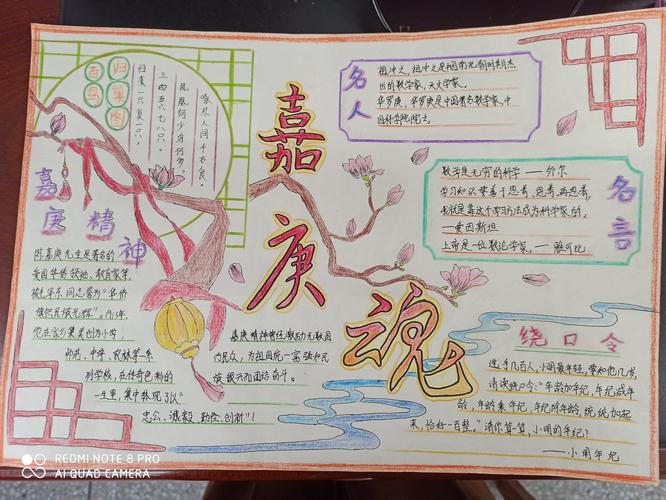 百鸟
归巢图
归来一只复一只，
三四五六七八只。
凤凰何少鸟何多，
啄尽人间千石食。
嘉庚精神
陈嘉庚先生是著名的
爱国华侨领袖、教育家等，
被毛泽东同志誉为“华侨
旗帜民族光辉”。1913年，
他在家乡集美创办小学，
师范、中学、
列学校，在传奇色彩的
一生里，集中体现了以“
忠公、诚毅、勤俭、创新”！
嘉庚魂
嘉庚精神曾经激励无数国
内民众，为祖国统一富强和民
族振兴而团结奋斗。
名人
祖冲之，祖冲之是中国南北朝时期杰
出的数学家，天文学家。
华罗庚，华罗庚是中国著名数学家，中
国科学院院士。
名言
数学是无穷的科学——外尔
学习知识要善于思考，思考，再思考，
我就是靠这个学习方法成为科学家的，
——爱因斯坦
上帝是一位数论学家，——雅可比
绕口令
选手几百人，小明最年轻，要知他几岁，
请读绕口令：“年龄加年纪，年纪减年
龄，年龄乘年纪，年纪除年龄，统统加起
来，恰好一百整。”请你算一算，小明的年纪？
——小明年纪
REDMI NOTE 8 PRO
AI QUAD CAMERA